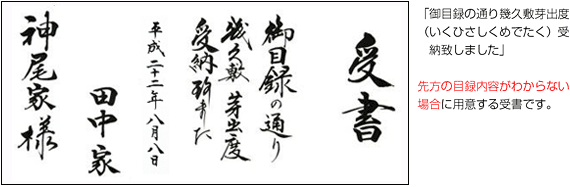 受書
御目録の通り
幾久敷芽出度
受納致しました
平成二十二年八月八日
田中家
神尾家様
「御目録の通り幾久敷芽出度
（いくひさしくめでたく）受
納致しました」
先方の目録内容がわからない
場合に用意する受書です。